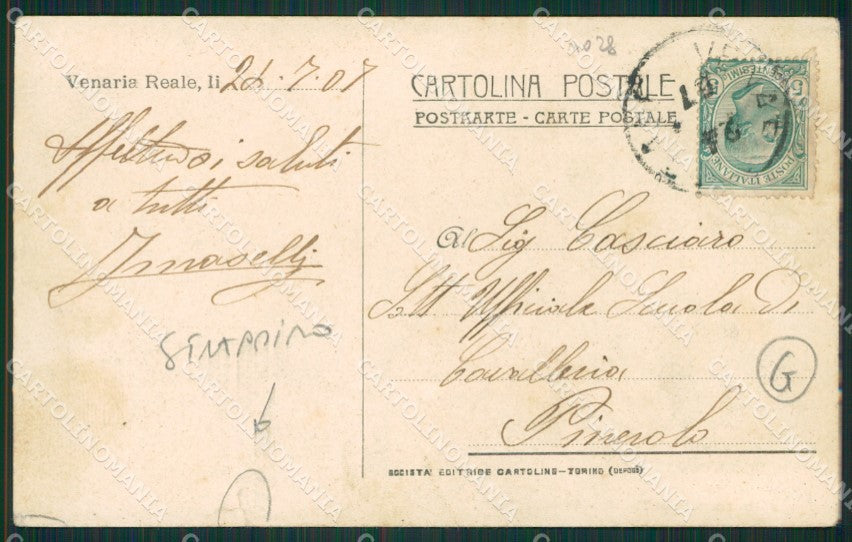 2028
Venaria Reale, li 26.7.07
CARTOLINA POSTALE
POSTKARTE - CARTE POSTALE
POSTE ITALIANE
CENTESIMI
5 5
VE
07
Affettuosi saluti
a tutti
Al Sig Casciaro
Sott Ufficiale Scuola Di
Cavalleria
Pinerolo
G
SOCIETA' EDITRICE CARTOLINE-TORINO (DEPOSÉ)
CARTOLINOMANIA